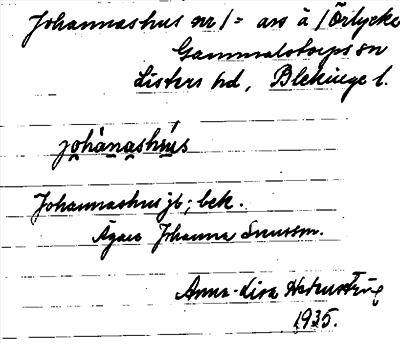 Johannashus nr 1 = ars å 1 Örlycke
Gammalstorps sn
Listers hd, Blekinge l.
johànashu̇́s
Johannashus jb; bek.
Ägare Johanna Svensson.
Anna-Lisa
1935.